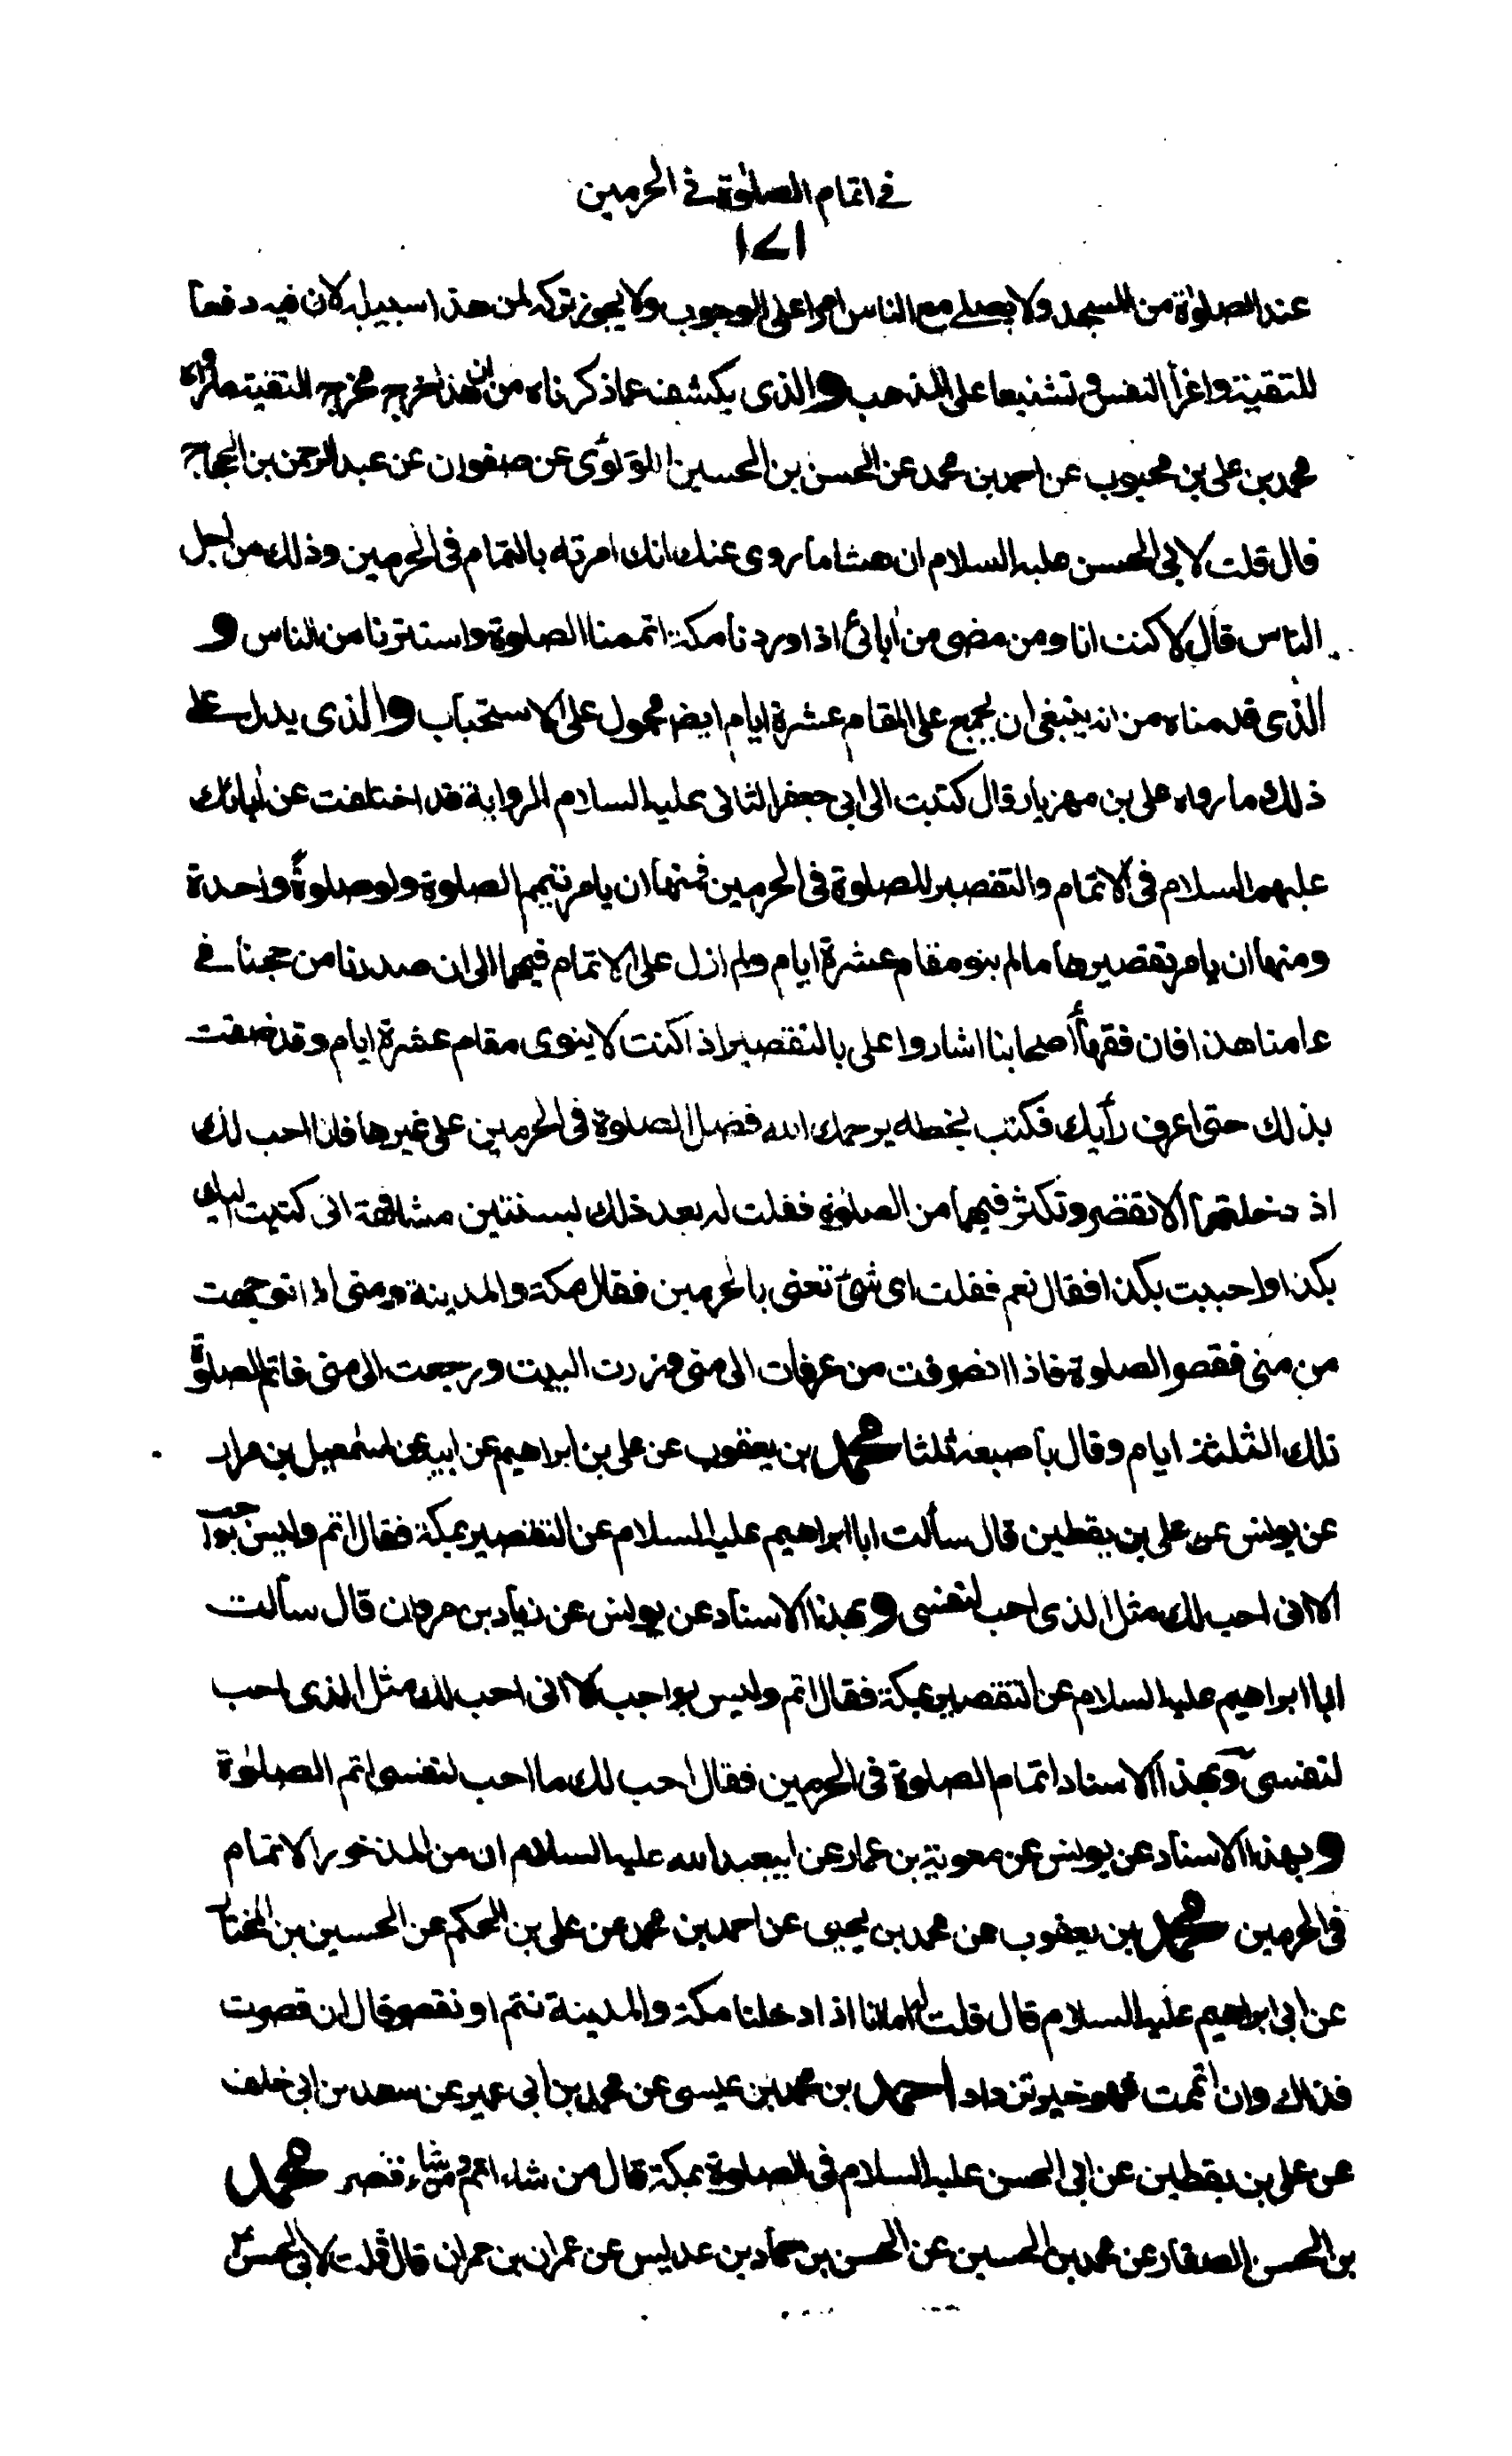 في اتمام الصلوة في الحرمين
١٧١
عند الصلوة من المسجد ولا يصلي مع الناس امرا على الوجوب ولا يجوز تركه لمن هذا سبيله لان فيه دفعا
للتقية واغراً للنفس وتشنيعا على المذهب والذى يكشف عما ذكرناه من ان هذا خرج مخرج التقية ما رواه
محمد بن على بن محبوب عن احمد بن محمد عن الحسن بن الحسين اللؤلوئى عن صفوان عن عبد الرحمن بن الحجاج
قال قلت لابى الحسن عليه السلام ان هشاما روى عنك انك امرته بالتمام فى الحرمين وذلك من اجل
الناس قال لا كنت انا ومن مضى من ابائى اذا وردنا مكة اتممنا الصلوة واستترنا من الناس و
الذى قدمناه من انه ينبغى ان يجمع على المقام عشرة ايام ايضا محمول على الاستحباب والذى يدل على
ذلك ما رواه على بن مهزيار قال كتبت الى ابى جعفر الثانى عليه السلام الرواية قد اختلفت عن ابائك
عليهم السلام فى الاتمام والتقصير للصلوة فى الحرمين فمنها ان يامر بتتميم الصلوة ولو صلوةً واحدة
ومنها ان يامر بتقصيرها ما لم ينو مقام عشرة ايام ولم ازل على الاتمام فيهما الى ان صدرنا من حجنا في
عامنا هذا فان فقهاً أصحابنا اشاروا على بالتقصير اذا كنت لا ينوى مقام عشرة ايام وقد ضقت
بذلك حتى اعرف رأيك فكتب بخطه يرحمك الله فضل الصلوة فى الحرمين على غيرهما فانا احب لك
اذ دخلتهما الا تقصر وتكثر فيهما من الصلوة فقلت له بعد ذلك بسنتين مشافهة انى كتبت اليك
بكذا واحببت بكذا فقال نعم فقلت اى شئ تعنى بالحرمين فقال مكة والمدينة ومنى اذا توجهت
من منى فقصر الصلوة فاذا انصرفت من عرفات الى منى وزرت البيت ورجعت الى منى فاتم الصلوة
تلك الثلثة ايام وقال باصبعه ثلثا محمد بن يعقوب عن على بن ابراهيم عن ابيه عن اسمعيل بن مرار
عن يونس عن على بن يقطين قال سألت ابا ابراهيم عليه السلام عن التقصير بمكة فقال اتم وليس بواجب
الا انى احب لك مثل الذى احب لنفسى وبهذا الاسناد عن يونس عن زياد بن مروان قال سألت
ابا ابراهيم عليه السلام عن التقصير بمكة فقال اتم وليس بواجب الا انى احب لك مثل الذى احب
لنفسى وبهذا الاسناد اتمام الصلوة فى الحرمين فقال احب لك ما احب لنفسى اتم الصلوة
وبهذا الاسناد عن يونس عن معوية بن عمار عن ابيعبد الله عليه السلام ان من المذخور الاتمام
فى الحرمين محمد بن يعقوب عن محمد بن يحيى عن احمد بن محمد عن على بن الحكم عن الحسين بن المختار
عن ابى ابراهيم عليه السلام قال قلت له انا اذا دخلنا مكة والمدينة نتم او نقصر قال ان قصرت
فذاك وان اتممت فهو خير تزداد احمد بن محمد بن عيسى عن محمد بن ابى عمير عن سعد بن ابى خلف
عن على بن يقطين عن ابى الحسن عليه السلام فى الصلوة بمكة قال من شاء اتم ومن شاء قصر محمد
بن الحسن الصفار عن محمد بن الحسين عن الحسن بن حماد بن عديس عن عمران بن حمران قال قلت لابى الحسن